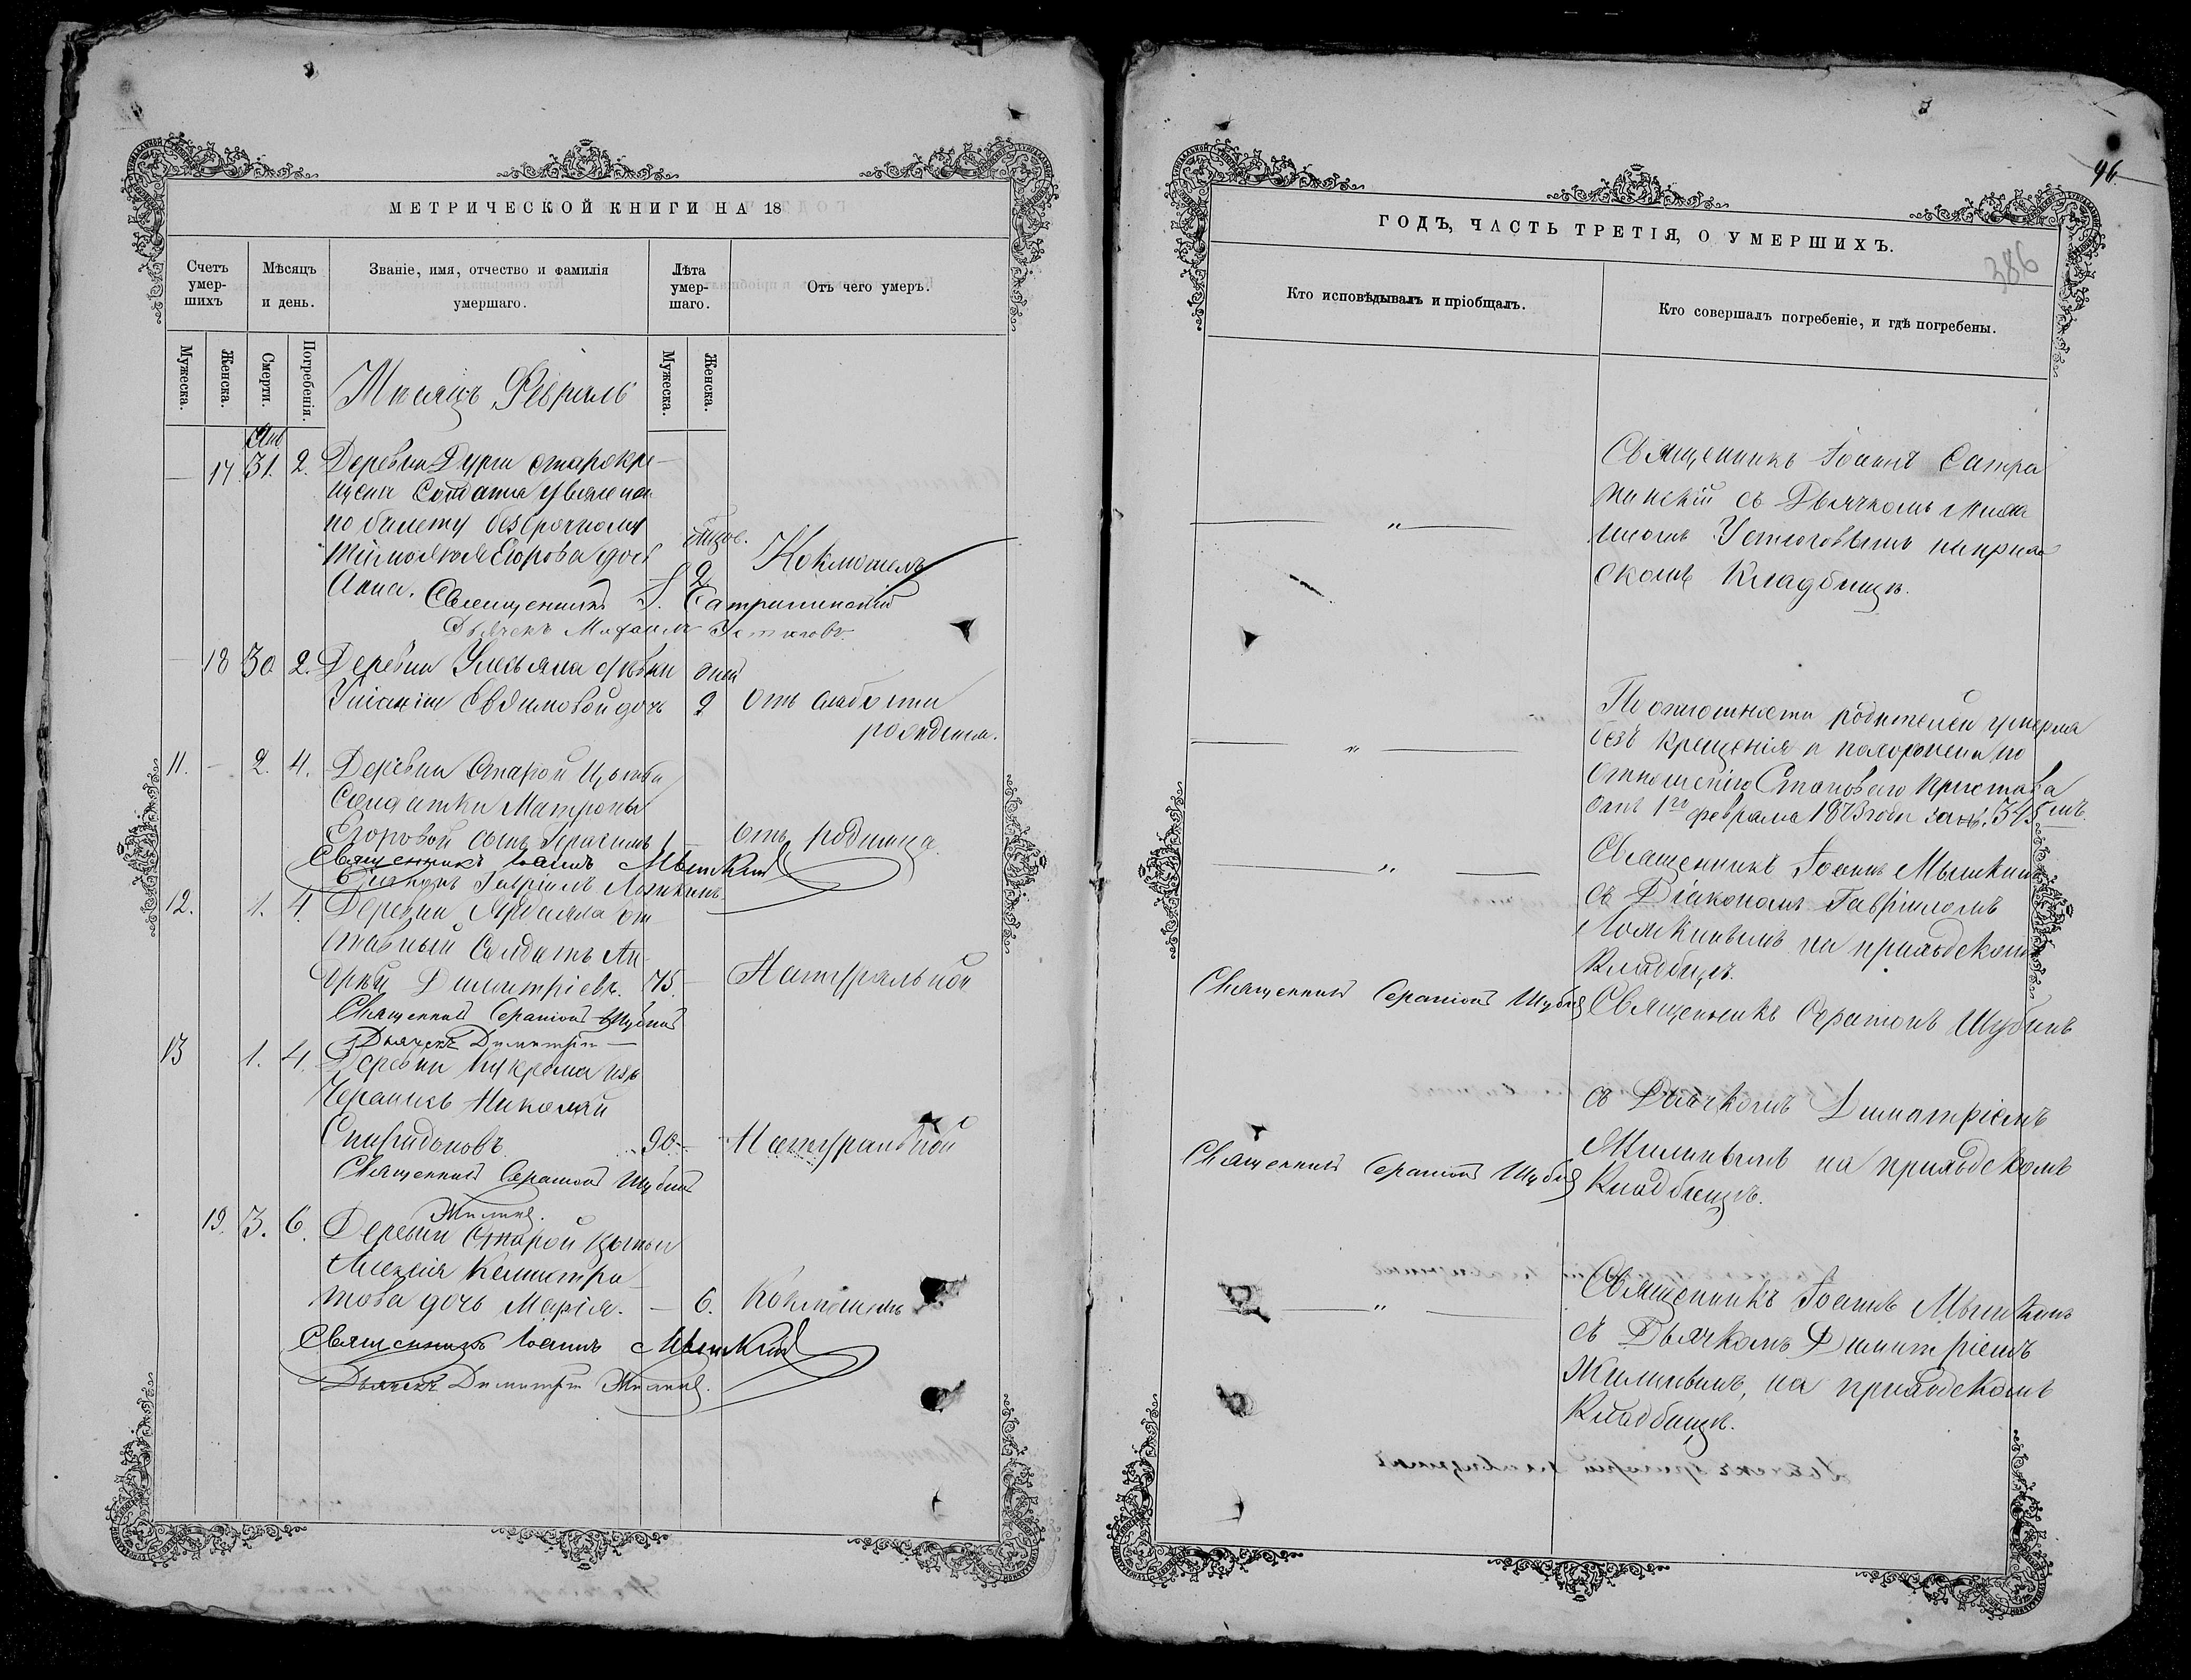 МЕТРИЧЕСКОЙ КНИГИ НА 18
Счетъ умер-шихъ
Мѣсяцъ и день.
Званіе, имя, отчество и фамилія умершаго.
Лѣта умер-шаго.
Отъ чего умеръ.
Мужеска.
Женска.
Смерти.
Погребенія.
Мужеска.
Женска.
Мѣсяцъ Февраль
Янв
17. 31. 2. Деревни старокре-
щена Солдата уволенна
по билету безсрочному
Егорова дочь
Анна. 2 Коклюшемъ
Священникъ І. Сатрапинскій
Дьячекъ Михаилъ Устюговъ.
18 30 2. Деревни дѣвки дней
дочь 2 Отъ слабости
рожденія.
11. - 2. 4. Деревни Старой
Солдатки Матроны
Егоровой сынъ 1 - отъ родимца.
Священникъ Іоаннъ Мышкинъ
Діаконъ Гавріилъ
12. 1. 4. Деревни от
ставный Солдатъ Ан
дрей Димитріевъ. 75. - Натуральной
Священникъ Серапіонъ Шубинъ
Дьячекъ Димитрій
13 1. 4. Деревни изъ
Николай
Спиридоновъ. 90 - Натуральной
Священникъ Серапіонъ Шубинъ
Жилинъ.
19. 3. 6. Деревни Старой
Алексія Калистра
това дочь Марія. - 6. Коклюшемъ
Священникъ Іоаннъ Мышкинъ
Дьячекъ Димитрій Жилинъ.
96
386
ГОДЪ, ЧАСТЬ ТРЕТІЯ, О УМЕРШИХЪ.
Кто исповѣдывалъ и пріобщалъ.
Кто совершалъ погребеніе, и гдѣ погребены.
Священникъ Іоаннъ Сатра
пинскій съ Дьячкомъ Миха
иломъ Устюговымъ на прихо
скомъ Кладбищѣ.
родителей умерла
безъ крещенія и похоронена по
отношенію Становаго Пристава
отъ 1го февраля 1873 года за № 345мъ.
Священникъ Іоаннъ Мышкинъ
съ Діакономъ Гавріиломъ
на приходскомъ
Кладбищѣ.
Священникъ Серапіонъ Шубинъ
Священникъ Серапіонъ Шубинъ
съ Дьячкомъ Димитріемъ
Жилинымъ на приходскомъ
Кладбищѣ.
Священникъ Серапіонъ Шубинъ
Священникъ Іоаннъ Мышкинъ
съ Дьячкомъ Димитріемъ
Жилинымъ, на приходскомъ
Кладбищѣ.